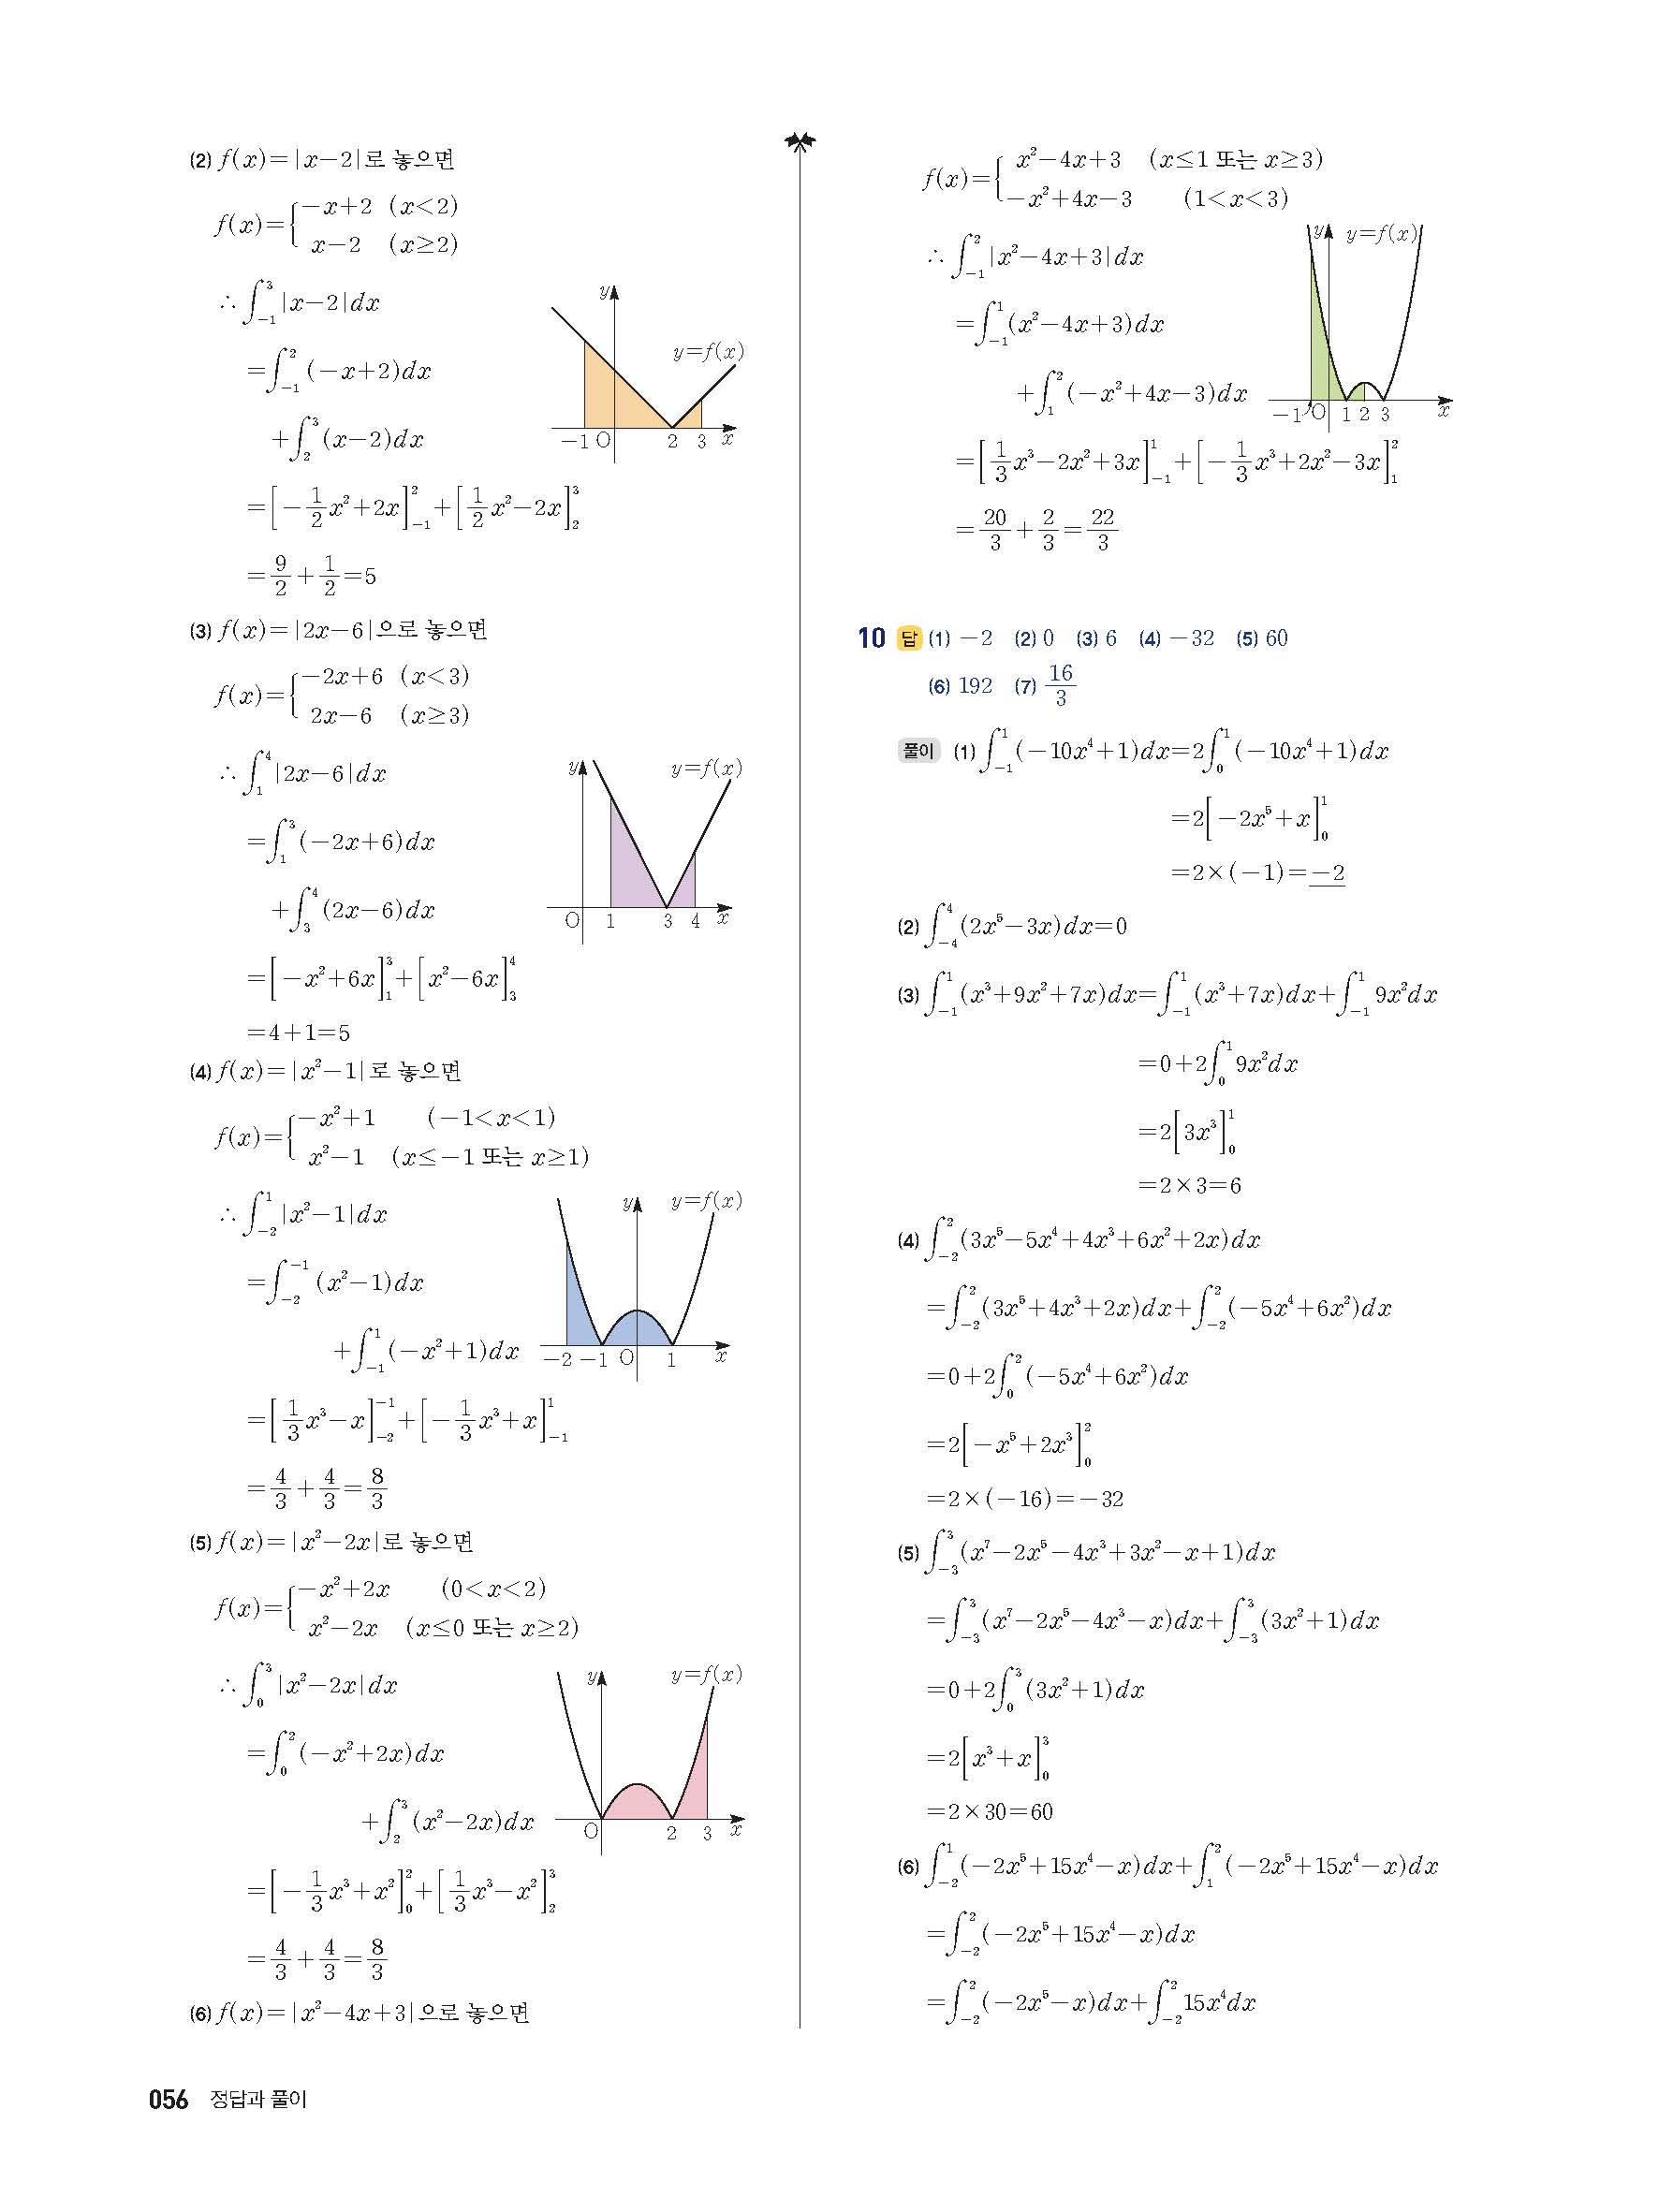 (2) f(x)=|x-2|로 놓으면
f(x)={ -x+2 (x<2)
x-2 (x≥2)
∴ ∫_{-1}^{3} |x-2|dx
=∫_{-1}^{2} (-x+2)dx
+∫_{2}^{3} (x-2)dx
y
y=f(x)
-1 O 2 3 x
=[-1/2 x²+2x]_{-1}^{2}+[1/2 x²-2x]_{2}^{3}
=9/2+1/2=5
(3) f(x)=|2x-6|으로 놓으면
f(x)={ -2x+6 (x<3)
2x-6 (x≥3)
∴ ∫_{1}^{4} |2x-6|dx
=∫_{1}^{3} (-2x+6)dx
+∫_{3}^{4} (2x-6)dx
y y=f(x)
O 1 3 4 x
=[-x²+6x]_{1}^{3}+[x²-6x]_{3}^{4}
=4+1=5
(4) f(x)=|x²-1|로 놓으면
f(x)={ -x²+1 (-1<x<1)
x²-1 (x≤-1 또는 x≥1)
∴ ∫_{-2}^{1} |x²-1|dx
=∫_{-2}^{-1} (x²-1)dx
+∫_{-1}^{1} (-x²+1)dx
y y=f(x)
-2 -1 O 1 x
=[1/3 x³-x]_{-2}^{-1}+[-1/3 x³+x]_{-1}^{1}
=4/3+4/3=8/3
(5) f(x)=|x²-2x|로 놓으면
f(x)={ -x²+2x (0<x<2)
x²-2x (x≤0 또는 x≥2)
∴ ∫_{0}^{3} |x²-2x|dx
=∫_{0}^{2} (-x²+2x)dx
+∫_{2}^{3} (x²-2x)dx
y y=f(x)
O 2 3 x
=[-1/3 x³+x²]_{0}^{2}+[1/3 x³-x²]_{2}^{3}
=4/3+4/3=8/3
(6) f(x)=|x²-4x+3|으로 놓으면
f(x)={ x²-4x+3 (x≤1 또는 x≥3)
-x²+4x-3 (1<x<3)
∴ ∫_{-1}^{2} |x²-4x+3|dx
=∫_{-1}^{1} (x²-4x+3)dx
+∫_{1}^{2} (-x²+4x-3)dx
y y=f(x)
-1 O 1 2 3 x
=[1/3 x³-2x²+3x]_{-1}^{1}+[-1/3 x³+2x²-3x]_{1}^{2}
=20/3+2/3=22/3
10 답 (1) -2 (2) 0 (3) 6 (4) -32 (5) 60
(6) 192 (7) 16/3
풀이 (1) ∫_{-1}^{1} (-10x⁴+1)dx=2∫_{0}^{1} (-10x⁴+1)dx
=2[-2x⁵+x]_{0}^{1}
=2×(-1)=-2
(2) ∫_{-4}^{4} (2x⁵-3x)dx=0
(3) ∫_{-1}^{1} (x³+9x²+7x)dx=∫_{-1}^{1} (x³+7x)dx+∫_{-1}^{1} 9x²dx
=0+2∫_{0}^{1} 9x²dx
=2[3x³]_{0}^{1}
=2×3=6
(4) ∫_{-2}^{2} (3x⁵-5x⁴+4x³+6x²+2x)dx
=∫_{-2}^{2} (3x⁵+4x³+2x)dx+∫_{-2}^{2} (-5x⁴+6x²)dx
=0+2∫_{0}^{2} (-5x⁴+6x²)dx
=2[-x⁵+2x³]_{0}^{2}
=2×(-16)=-32
(5) ∫_{-3}^{3} (x⁷-2x⁵-4x³+3x²-x+1)dx
=∫_{-3}^{3} (x⁷-2x⁵-4x³-x)dx+∫_{-3}^{3} (3x²+1)dx
=0+2∫_{0}^{3} (3x²+1)dx
=2[x³+x]_{0}^{3}
=2×30=60
(6) ∫_{-2}^{1} (-2x⁵+15x⁴-x)dx+∫_{1}^{2} (-2x⁵+15x⁴-x)dx
=∫_{-2}^{2} (-2x⁵+15x⁴-x)dx
=∫_{-2}^{2} (-2x⁵-x)dx+∫_{-2}^{2} 15x⁴dx
056 정답과 풀이